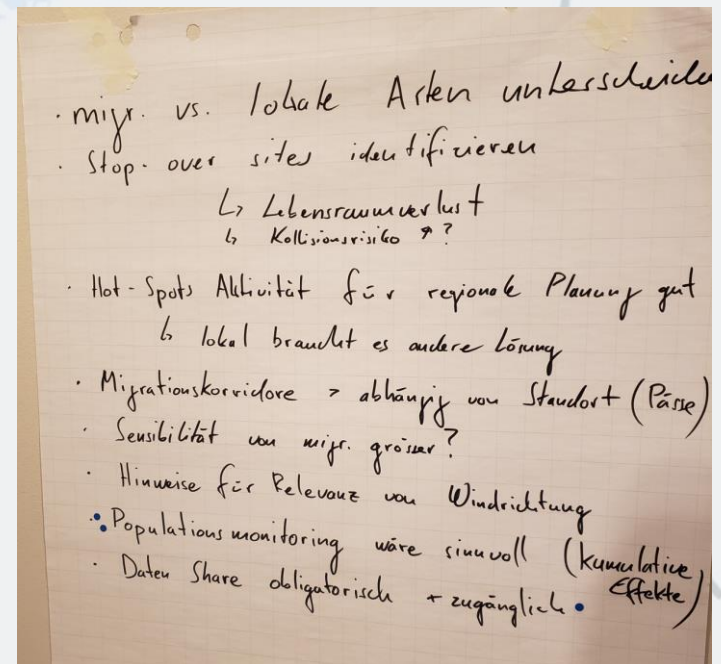 · migr. vs. lokale Arten unterscheide
· Stop-over sites identifizieren
↳ Lebensraumverlust
↳ Kollisionsrisiko ↗?
· Hot-Spots Aktivität für regionale Planung gut
↳ lokal braucht es andere Lösung
· Migrationskorridore > abhängig von Standort (Pässe)
· Sensibilität von migr. grösser?
· Hinweise für Relevanz von Windrichtung
· Populationsmonitoring wäre sinnvoll (kumulative
Effekte)
· Daten Share obligatorisch + zugänglich